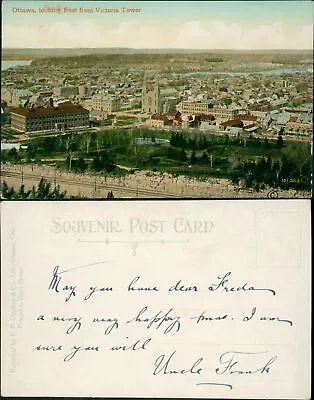 Ottawa, looking East from Victoria Tower
SOUVENIR POST CARD
May you have dear Freda
a very very happy Xmas. I am
sure you will
Uncle Frank